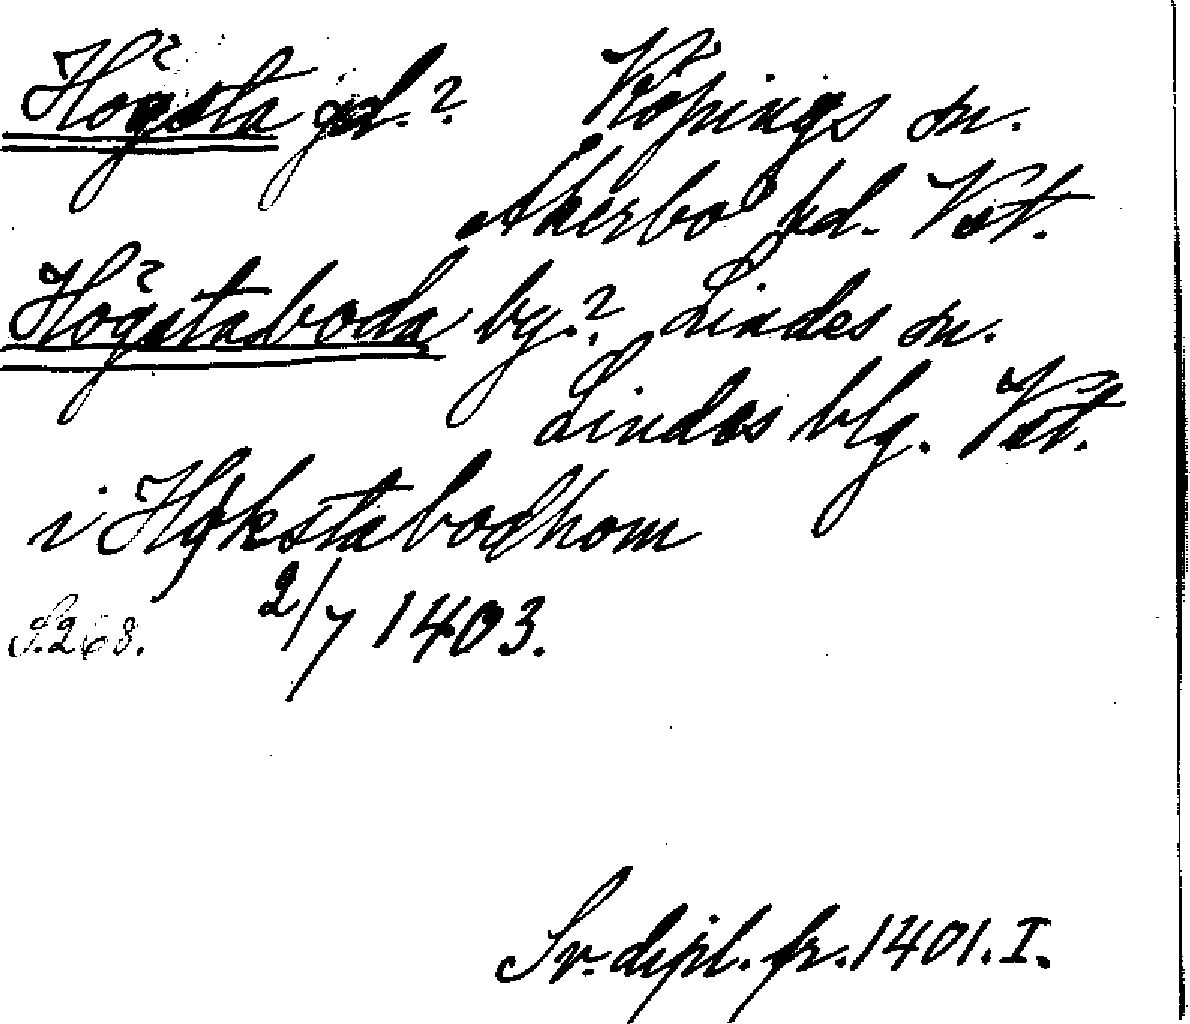 Högsta gd.? Köpings sn.
Åkerbo hd. Vst.
Högstaboda by.? Lindes sn.
Lindes blg. Vst.
i Høkstabodhom
S. 268. 2/7 1403.
Sv. dipl. fr. 1401. I.